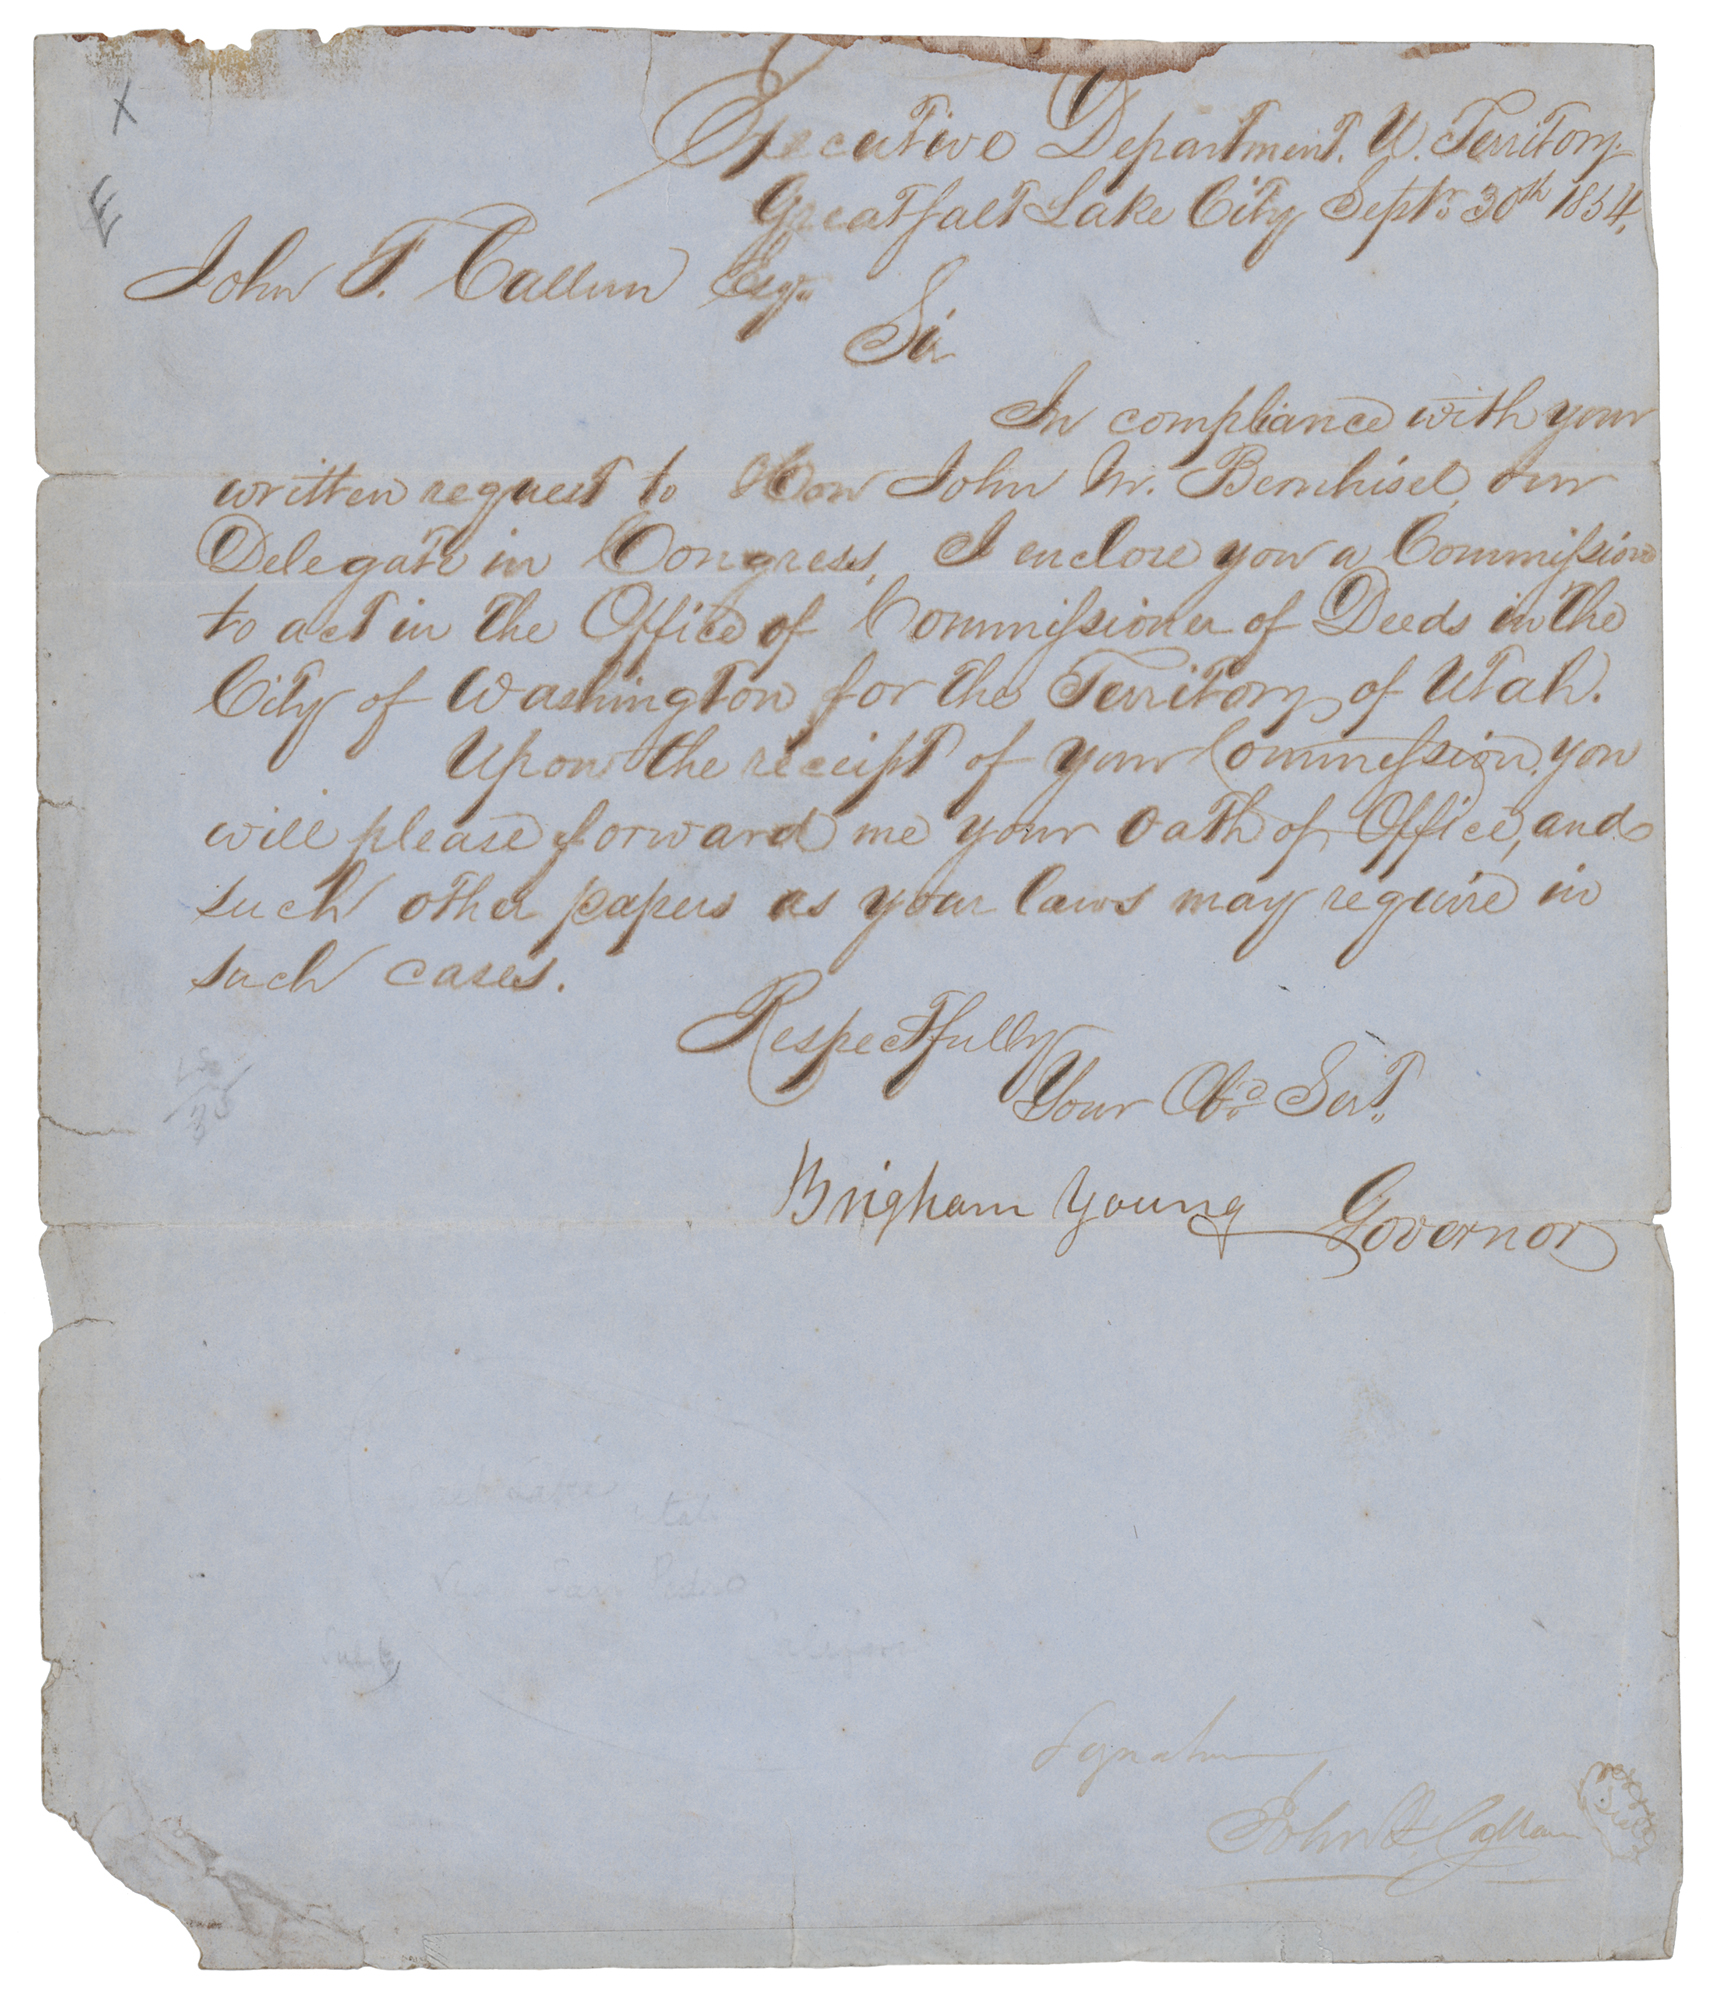 X
E
Executive Department. U. Territory.
Great Salt Lake City Septr. 30th 1854,
John T. Callun Esqr.
Sir
In compliance with your
written request to Hon John M. Bernhisel, our
Delegate in Congress, I enclose you a Commission
to act in the Office of Commissioner of Deeds in the
City of Washington for the Territory of Utah.
Upon the receipt of your Commission, you
will please forward me your Oath of Office, and
such other papers as your laws may require in
such cases.
Respectfully
Your Obd. Servt.
Brigham Young Governor
Via San Pedro
Signature
John